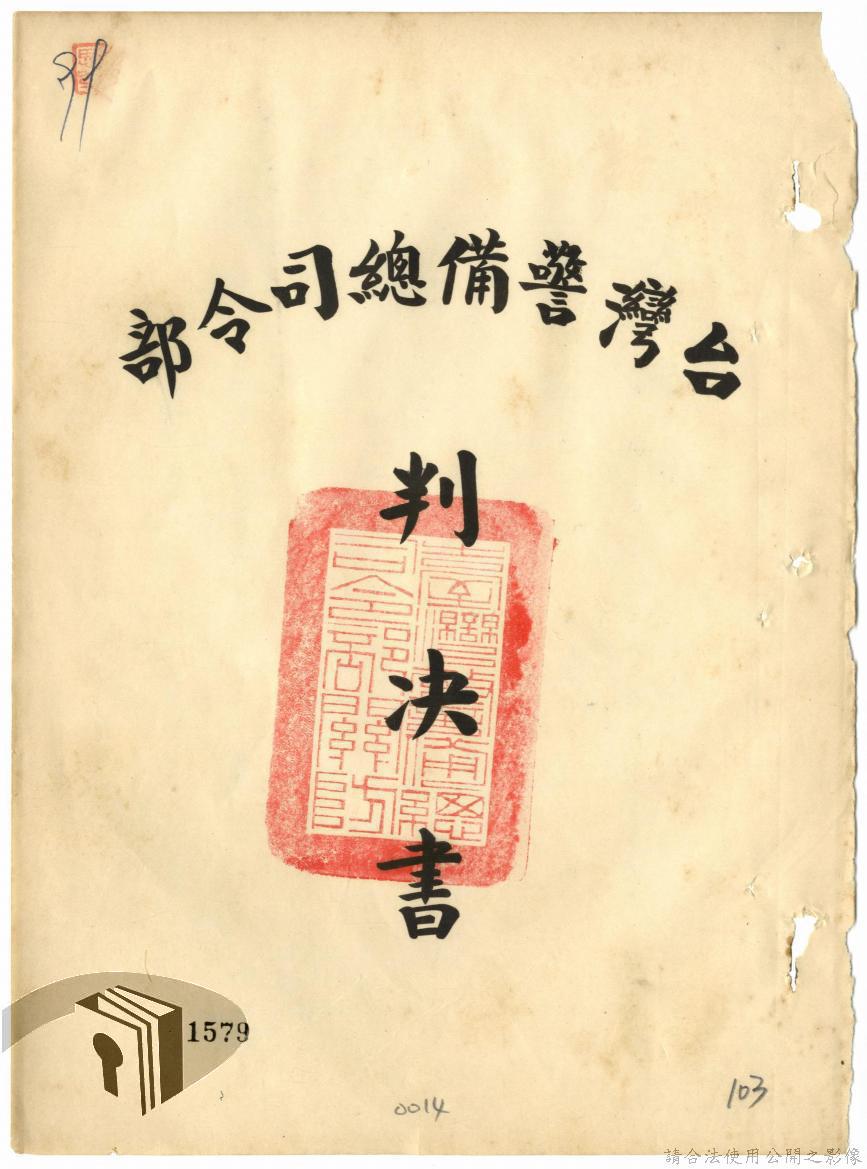 台灣警備總司令部
判決書
1579
0014
103
請合法使用公開之影像